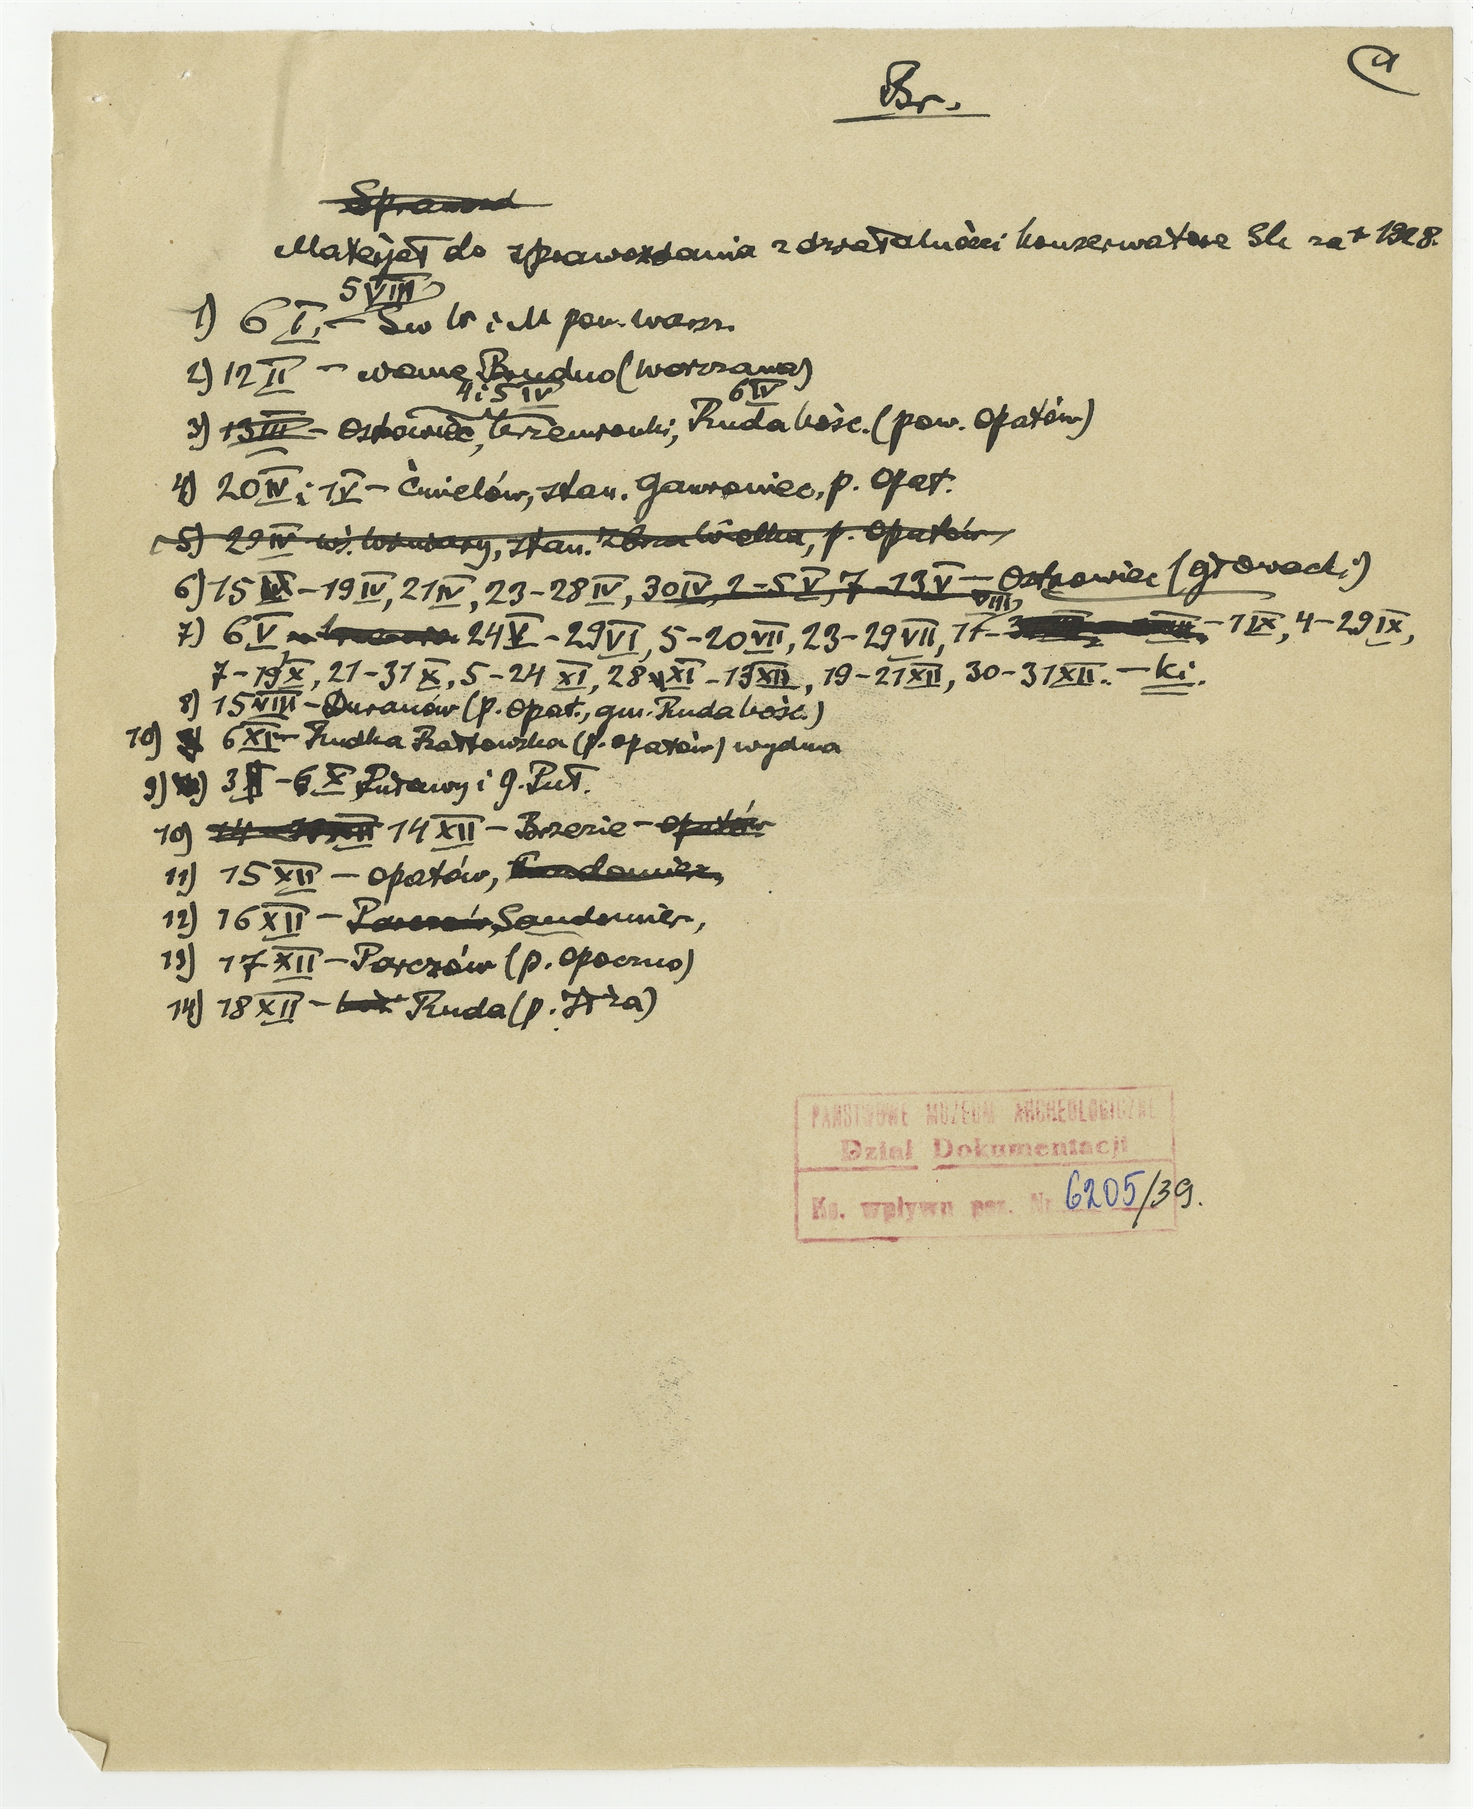 Br.
Sprawozd
Materjał do sprawozdania z działalności konserwatora za r 1928.
5 VIII
1) 6 I. – Św W i M pow. warsz.
2) 12 II – Brudno (Warszawa)
4 i 5 IV 6 IV
3) 13 III – Ostrowiec, Krzemionki, Ruda Kośc. (pow. Opatów)
4) 20 IV i 1 V – Ćmielów, stan. Gawroniec, p. Opat.
5) 29 IV stan. p. Opatów
6) 15 – 19 IV, 21 IV, 23 – 28 IV, 30 IV, 2 – 5 V, 7 – 13 V – Ostrowiec (
VIII
7) 6 V 24 V – 29 VI, 5 – 20 VII, 23 – 29 VII, 17 – 1 IX, 4 – 29 IX,
7 – 19 X, 21 – 31 X, 5 – 24 XI, 28 XI – 13 XII, 19 – 21 XII, 30 – 31 XII. – Ki.
8) 15 VIII – Duranów (p. Opat., gm. Ruda Kośc.)
10) 6 XI – Rudka Bałtowska (p. Opatów) wydma
9) 3 – 6 X Puławy i g. Puł.
10) 14 XII – Brzezie – Opatów
11) 15 XII – Opatów, Sandomierz,
12) 16 XII – Parczów, Sandomierz,
13) 17 XII – Parczów (p. Opoczno)
14) 18 XII – Ruda (p. Iłża)
PAŃSTWOWE MUZEUM ARCHEOLOGICZNE
Dział Dokumentacji
Ks. wpływu poz. Nr 6205/39.